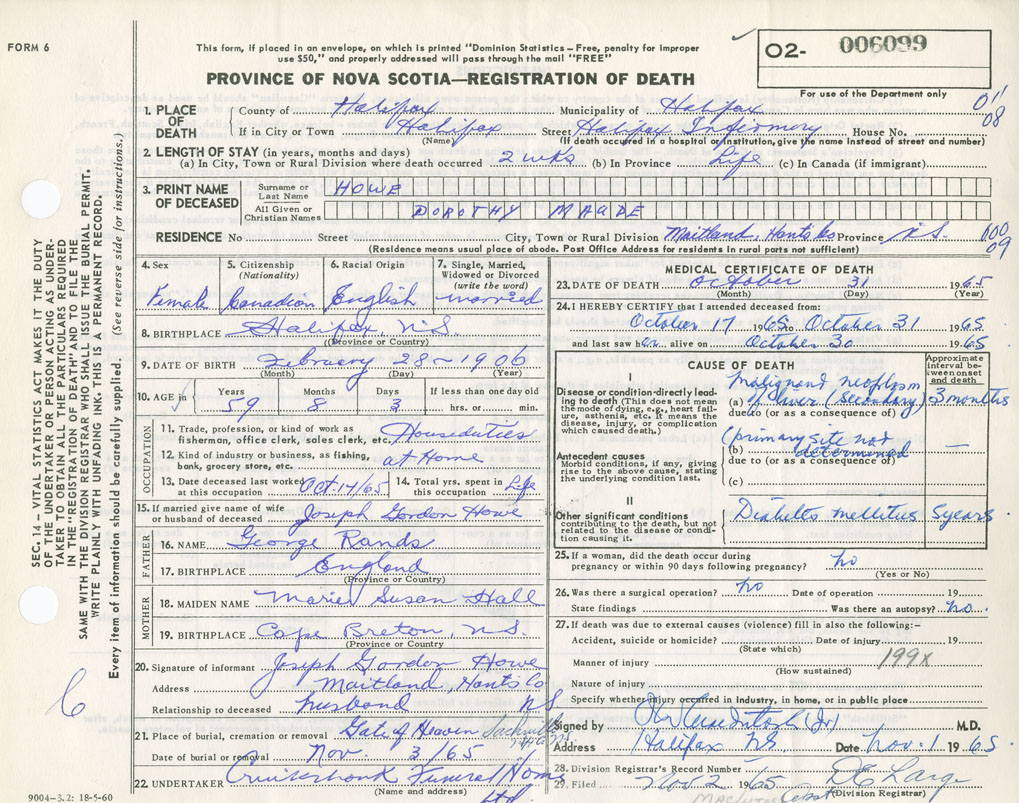 FORM 6
This form, if placed in an envelope, on which is printed "Dominion Statistics – Free, penalty for improper
use $50," and properly addressed will pass through the mail "FREE"
PROVINCE OF NOVA SCOTIA—REGISTRATION OF DEATH
O2- 006099
For use of the Department only
011
08
SEC. 14 – VITAL STATISTICS ACT MAKES IT THE DUTY
OF THE UNDERTAKER OR PERSON ACTING AS UNDER-
TAKER TO OBTAIN ALL THE PARTICULARS REQUIRED
IN THE "REGISTRATION OF DEATH" AND TO FILE THE
SAME WITH THE DIVISION REGISTRAR WHO SHALL ISSUE THE BURIAL PERMIT.
WRITE PLAINLY WITH UNFADING INK. THIS IS A PERMANENT RECORD.
Every item of information should be carefully supplied. (See reverse side for instructions.)
1. PLACE OF DEATH
County of Halifax Municipality of Halifax
If in City or Town Halifax Street Halifax Infirmary House No.
(Name) (If death occurred in a hospital or institution, give the name instead of street and number)
2. LENGTH OF STAY (in years, months and days)
(a) In City, Town or Rural Division where death occurred 2 wks (b) In Province Life (c) In Canada (if immigrant)
3. PRINT NAME OF DECEASED
Surname or Last Name HOWE
All Given or Christian Names DOROTHY MAUDE
RESIDENCE No Street City, Town or Rural Division Maitland, Hants Co Province N.S.
100
09
(Residence means usual place of abode. Post Office Address for residents in rural parts not sufficient)
4. Sex Female
5. Citizenship (Nationality) Canadian
6. Racial Origin English
7. Single, Married, Widowed or Divorced (write the word) married
8. BIRTHPLACE Halifax, N.S
(Province or Country)
9. DATE OF BIRTH February 28 – 1906
(Month) (Day) (Year)
10. AGE in Years 59 Months 8 Days 3 If less than one day old hrs. or min.
OCCUPATION
11. Trade, profession, or kind of work as fisherman, office clerk, sales clerk, etc. Houseduties
12. Kind of industry or business, as fishing, bank, grocery store, etc. at Home
13. Date deceased last worked at this occupation Oct. 14/65 14. Total yrs. spent in this occupation Life
15. If married give name of wife or husband of deceased Joseph Gordon Howe
FATHER
16. NAME George Rands
17. BIRTHPLACE England
(Province or Country)
MOTHER
18. MAIDEN NAME Marie Susan Hall
19. BIRTHPLACE Cape Breton, N.S.
(Province or Country)
20. Signature of informant Joseph Gordon Howe
Address Maitland, Hants Co
Relationship to deceased husband NS
6
21. Place of burial, cremation or removal Gate of Heaven Sackville
Date of burial or removal Nov. 3/65
22. UNDERTAKER Cruikshank Funeral Home
(Name and address) Ltd.
9004–3.2: 18-5-60
MEDICAL CERTIFICATE OF DEATH
23. DATE OF DEATH October 31 1965
(Month) (Day) (Year)
24. I HEREBY CERTIFY that I attended deceased from:
October 17 1965 to October 31 1965
and last saw her alive on October 30 1965
CAUSE OF DEATH
Approximate interval between onset and death
I
Disease or condition directly leading to death (This does not mean the mode of dying, e.g., heart failure, asthenia, etc. It means the disease, injury, or complication which caused death.)
(a) Malignant neoplasm of liver (Secondary) 3 months
due to (or as a consequence of)
Antecedent causes
Morbid conditions, if any, giving rise to the above cause, stating the underlying condition last.
(b) (primary site not determined —
due to (or as a consequence of)
(c)
II
Other significant conditions contributing to the death, but not related to the disease or condition causing it.
Diabetes mellitus 5 years
25. If a woman, did the death occur during
pregnancy or within 90 days following pregnancy? no
(Yes or No)
26. Was there a surgical operation? no Date of operation 19
State findings Was there an autopsy? no.
27. If death was due to external causes (violence) fill in also the following:–
Accident, suicide or homicide? Date of injury 19
(State which)
Manner of injury 199X
(How sustained)
Nature of injury
Specify whether injury occurred in industry, in home, or in public place
Signed by (Jr) M.D.
Address Halifax NS Date Nov. 1 1965.
28. Division Registrar's Record Number
29. Filed Nov 2 1965 Large
(Division Registrar)